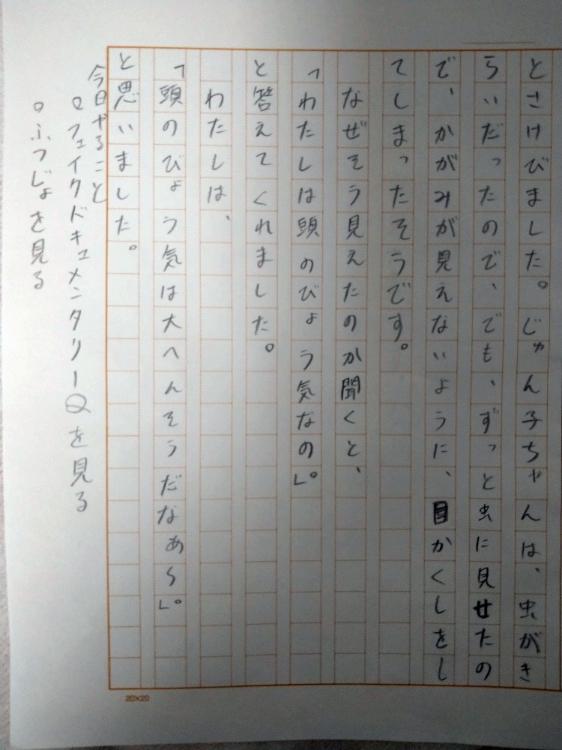 とさけびました。じゅん子ちゃんは、虫がき
らいだったので、でも、ずっと虫に見せたの
で、かがみが見えないように、目かくしをし
てしまったそうです。
なぜそう見えたのか聞くと、
「わたしは頭のびょう気なの」。
と答えてくれました。
わたしは、
「頭のびょう気は大へんそうだなあ〜」。
と思いました。
今日やること
○フェイクドキュメンタリーQを見る
○ふつじょを見る
20×20